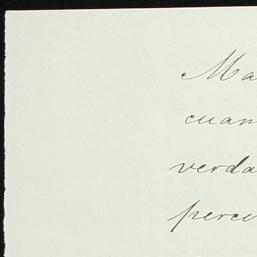 Ma
cuan
verda
perci